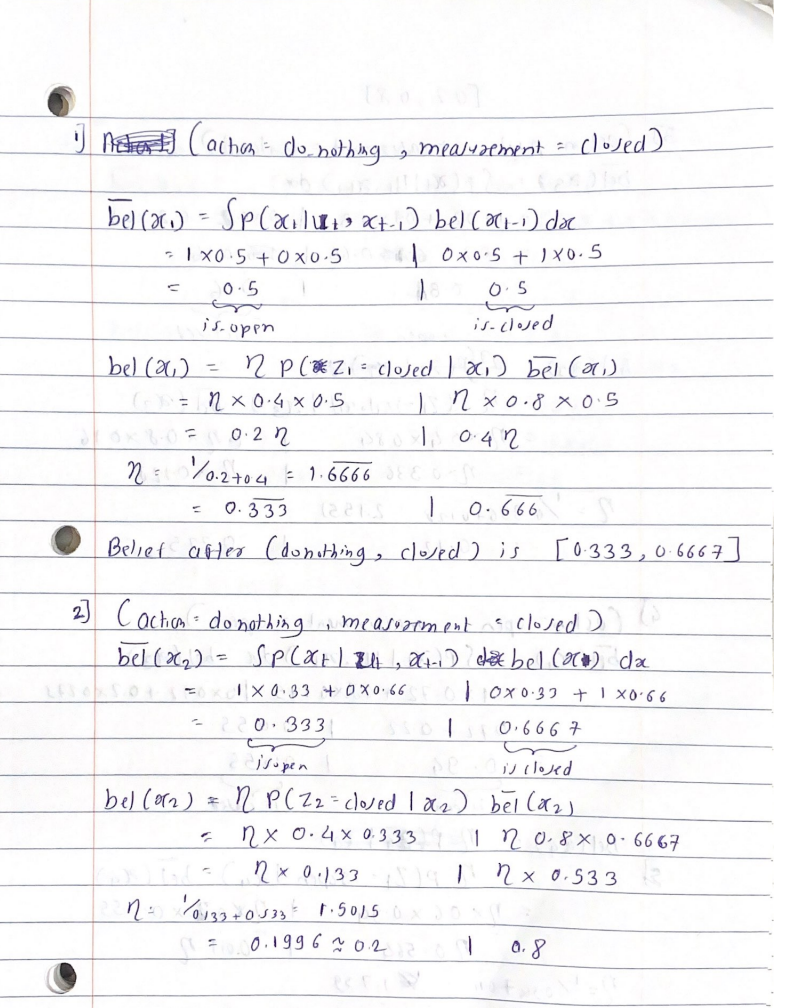 1] (action = do_nothing, measurement = closed)
bel(x₁) = ∫P(x₁|u₁, xₜ₋₁) bel(xₜ₋₁) dx
= 1×0.5 + 0×0.5 | 0×0.5 + 1×0.5
= 0.5 | 0.5
is_open is_closed
bel(x₁) = η P(z₁ = closed | x₁) bel(x₁)
= η × 0.4 × 0.5 | η × 0.8 × 0.5
= 0.2 η | 0.4 η
η = 1/0.2+0.4 = 1.6666
= 0.333 | 0.666
Belief after (donothing, closed) is [0.333, 0.6667]
2] (action = donothing, measurement = closed)
bel(x₂) = ∫P(xₜ | , xₜ₋₁) bel(x) dx
= 1×0.33 + 0×0.66 | 0×0.33 + 1×0.66
= 0.333 | 0.6667
is_open is closed
bel(x₂) = η P(Z₂ = closed | x₂) bel(x₂)
= η × 0.4 × 0.333 | η 0.8 × 0.6667
= η × 0.133 | η × 0.533
η = 1/0.133+0.533 = 1.5015
= 0.1996 ≈ 0.2 | 0.8